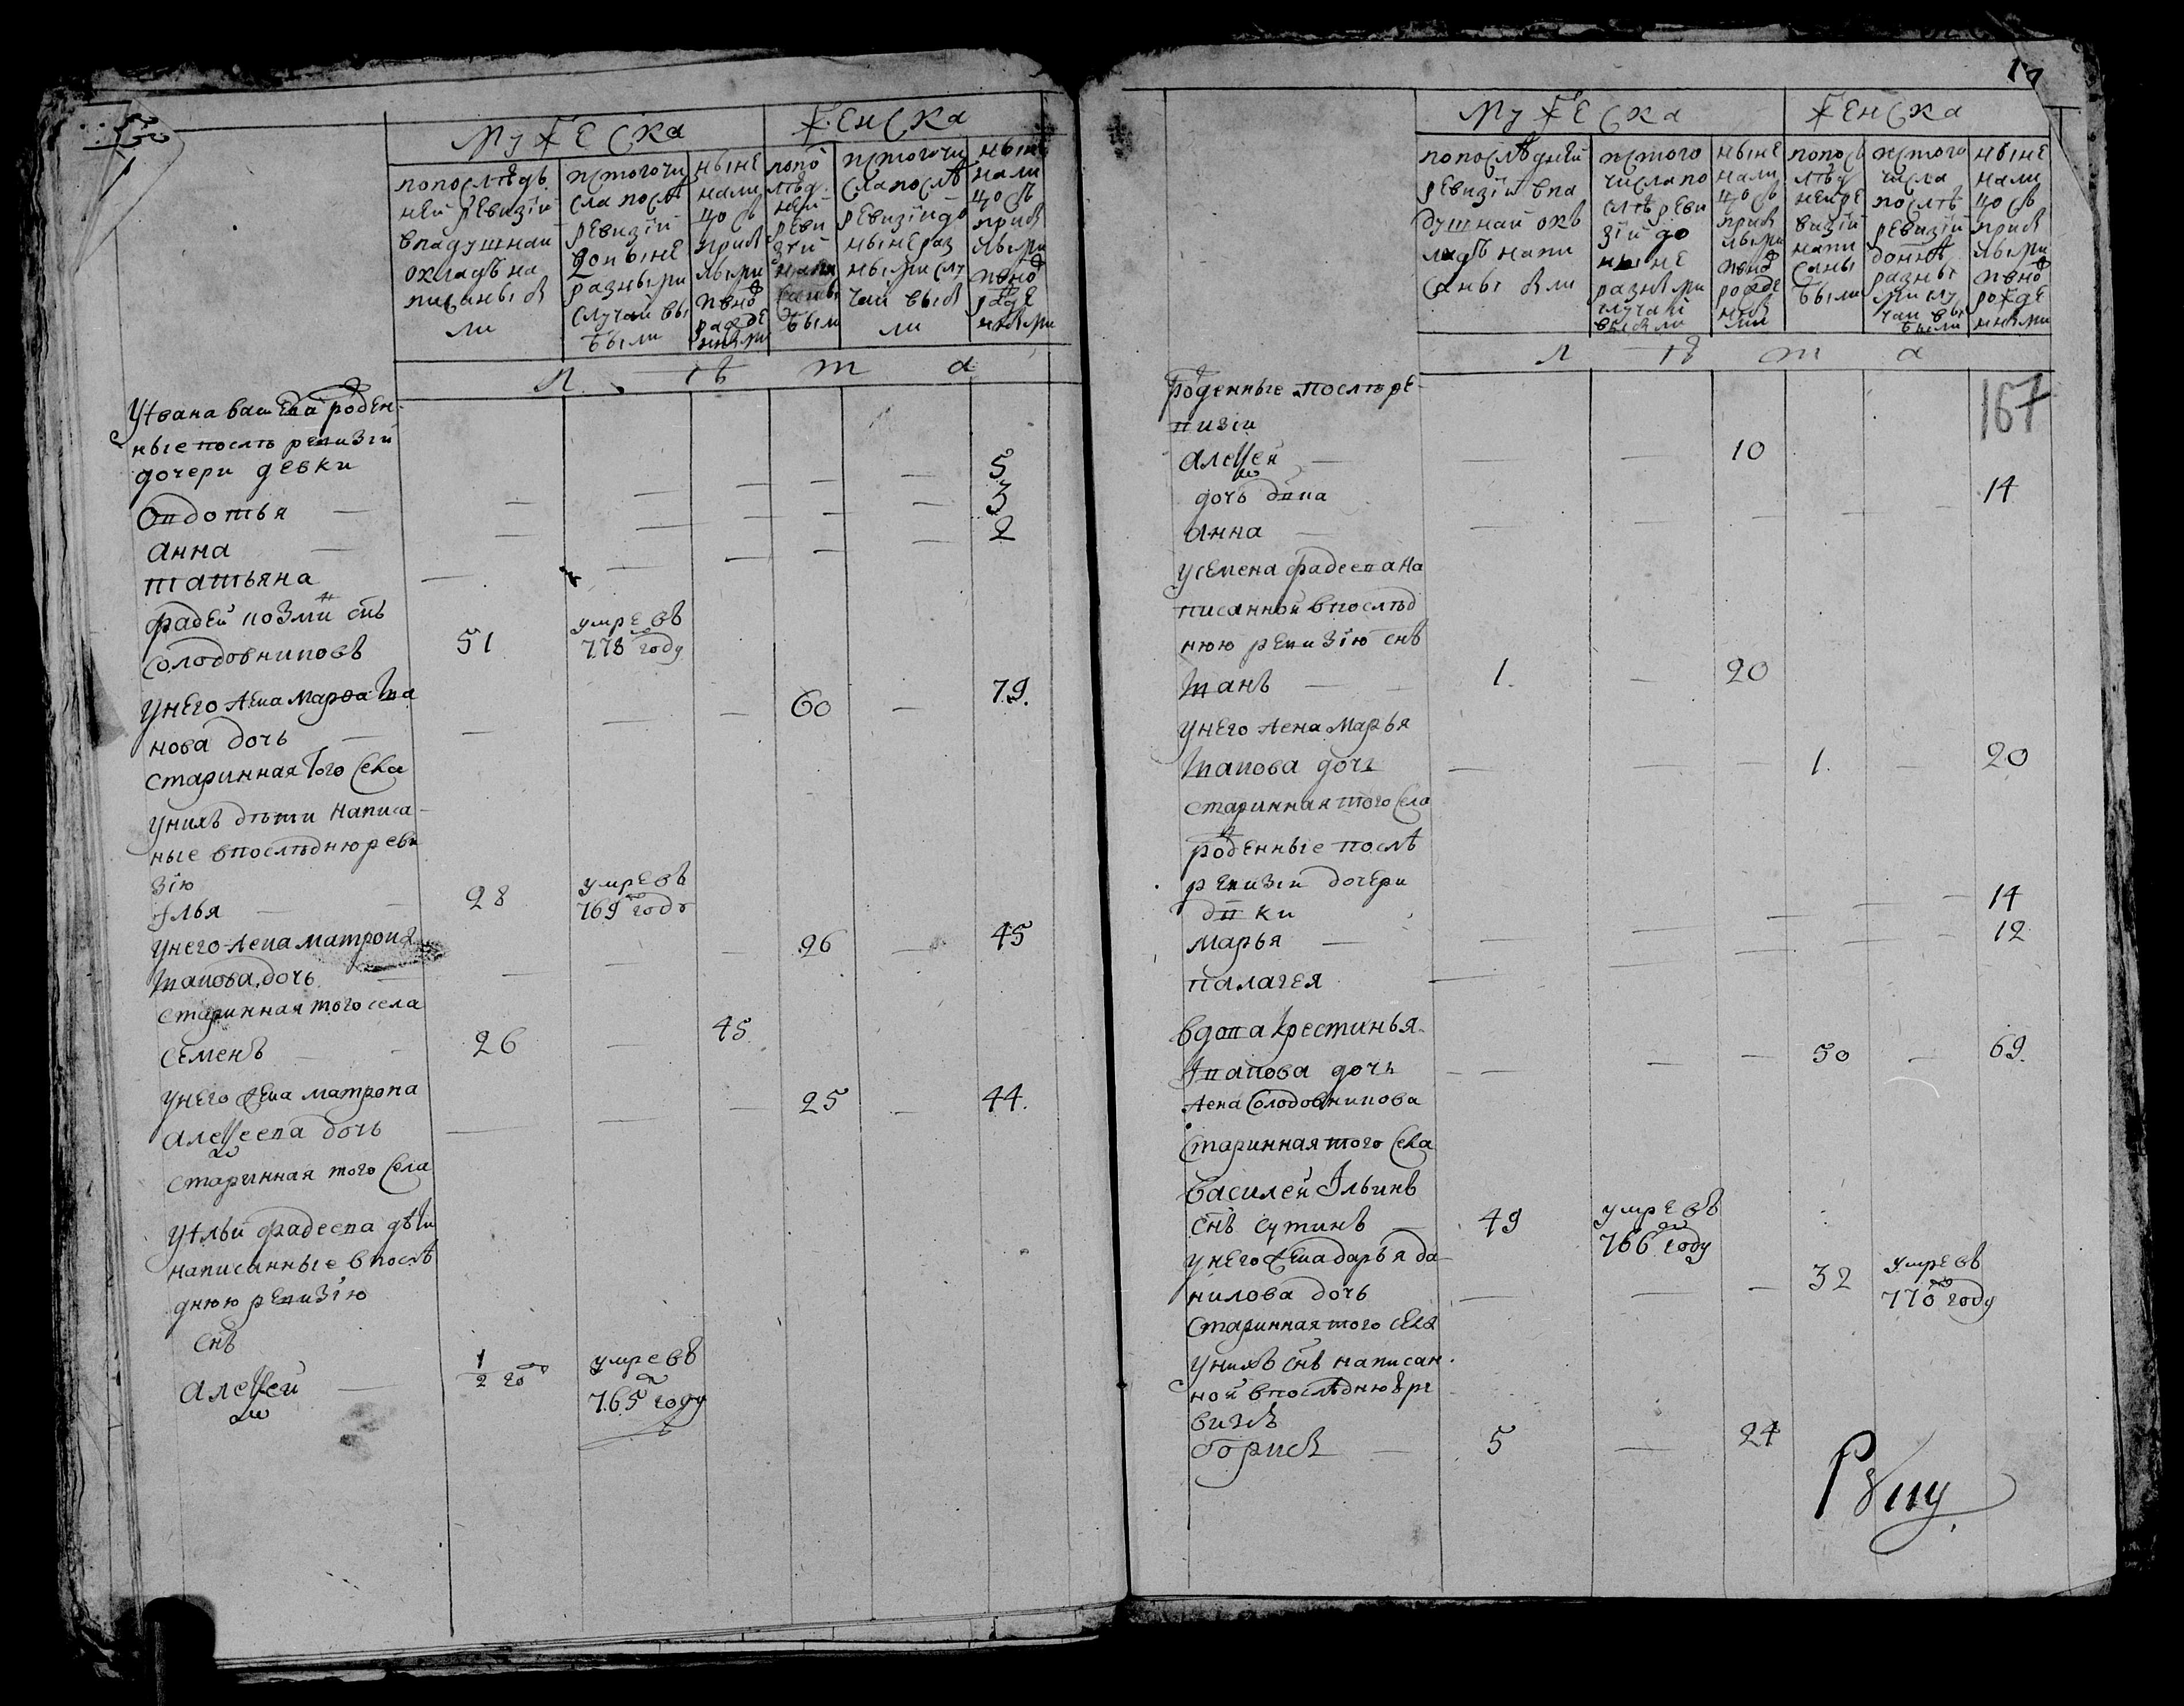 Мужеска
Женска
попослѣдъ
ней ревизіи
вподушнаи
окладъ на
писаны б
ли
истогочи
сла послѣ
ревизіи
доныне
разными
случаи вы
были
ныне
нали
цо съ
приб
лыми
рожде
попо
слѣд
ней
реви
зіи
были
истогочи
сла послѣ
ревизіи до
ныне раз
ными слу
чаи выб
ли
нали
цо съ
приб
лыми
рожде
л ѣ т а
Уивана васильева роден-
ные послѣ ревизіи
дочери девки
Овдотья — 5
анна — 3
татьяна — 2
фадей козмин снъ
Солодовниковъ 51 умре въ 778 году
Унего жена марѳа Ива
нова дочь — 60 — 79.
старинная того села
Унихъ дѣти написа-
ные впослѣднюреви
зію
Илья — 28 умре въ 769 году
Унего жена матрона
Иванова дочь — 26 — 45
старинная того села
Семенъ 26 — 45
Унего жена матрона
алеѯеева дочь — 25 — 44.
старинная того села
Уильи фадеева дѣти
написанные впослѣ
днюю ревизію
снъ
алеѯей — 1/2 го умре въ 765 году
Мужеска
Женска
попослѣдней
ревизіи впо
душнай окъ
ладъ напи
саны были
истого
числапо
слѣ реви
зіи до
ныне
разными
случаи
выбыли
ныне
нали
цо съ
приб
лыми
рожде
попос
лѣд
ней ре
визіи
напи
саны
были
истого
числа
послѣ
ревизіи
разны
ми слу
чаи вы
были
ныне
нали
цо съ
приб
лыми
рожде
ными
л ѣ т а
167
роденные послѣ ре-
визіи
алеѯей — 10
дочь дѣвка
анна — 14
Усемена фадеева на
писанной впослѣд
нюю ревизію снъ
Иванъ — 1. — 20
Унего жена Марья
Иванова дочь — 1. — 20
старинная того села
роденные послѣ
ревизіи дочери
дѣвки
марья — 14
палагея — 12
вдова крестинья
Иванова дочь — 50 — 69.
жена Солодовникова
старинная того села
василей Ильинъ
снъ сутинъ — 49 умре въ 766 году
Унего жена дарья да-
нилова дочь — 32 умре въ 770 году
старинная того села
Унихъ снъ написан
ной впослѣднюю ре
визіѣ
борисъ — 5 — 24